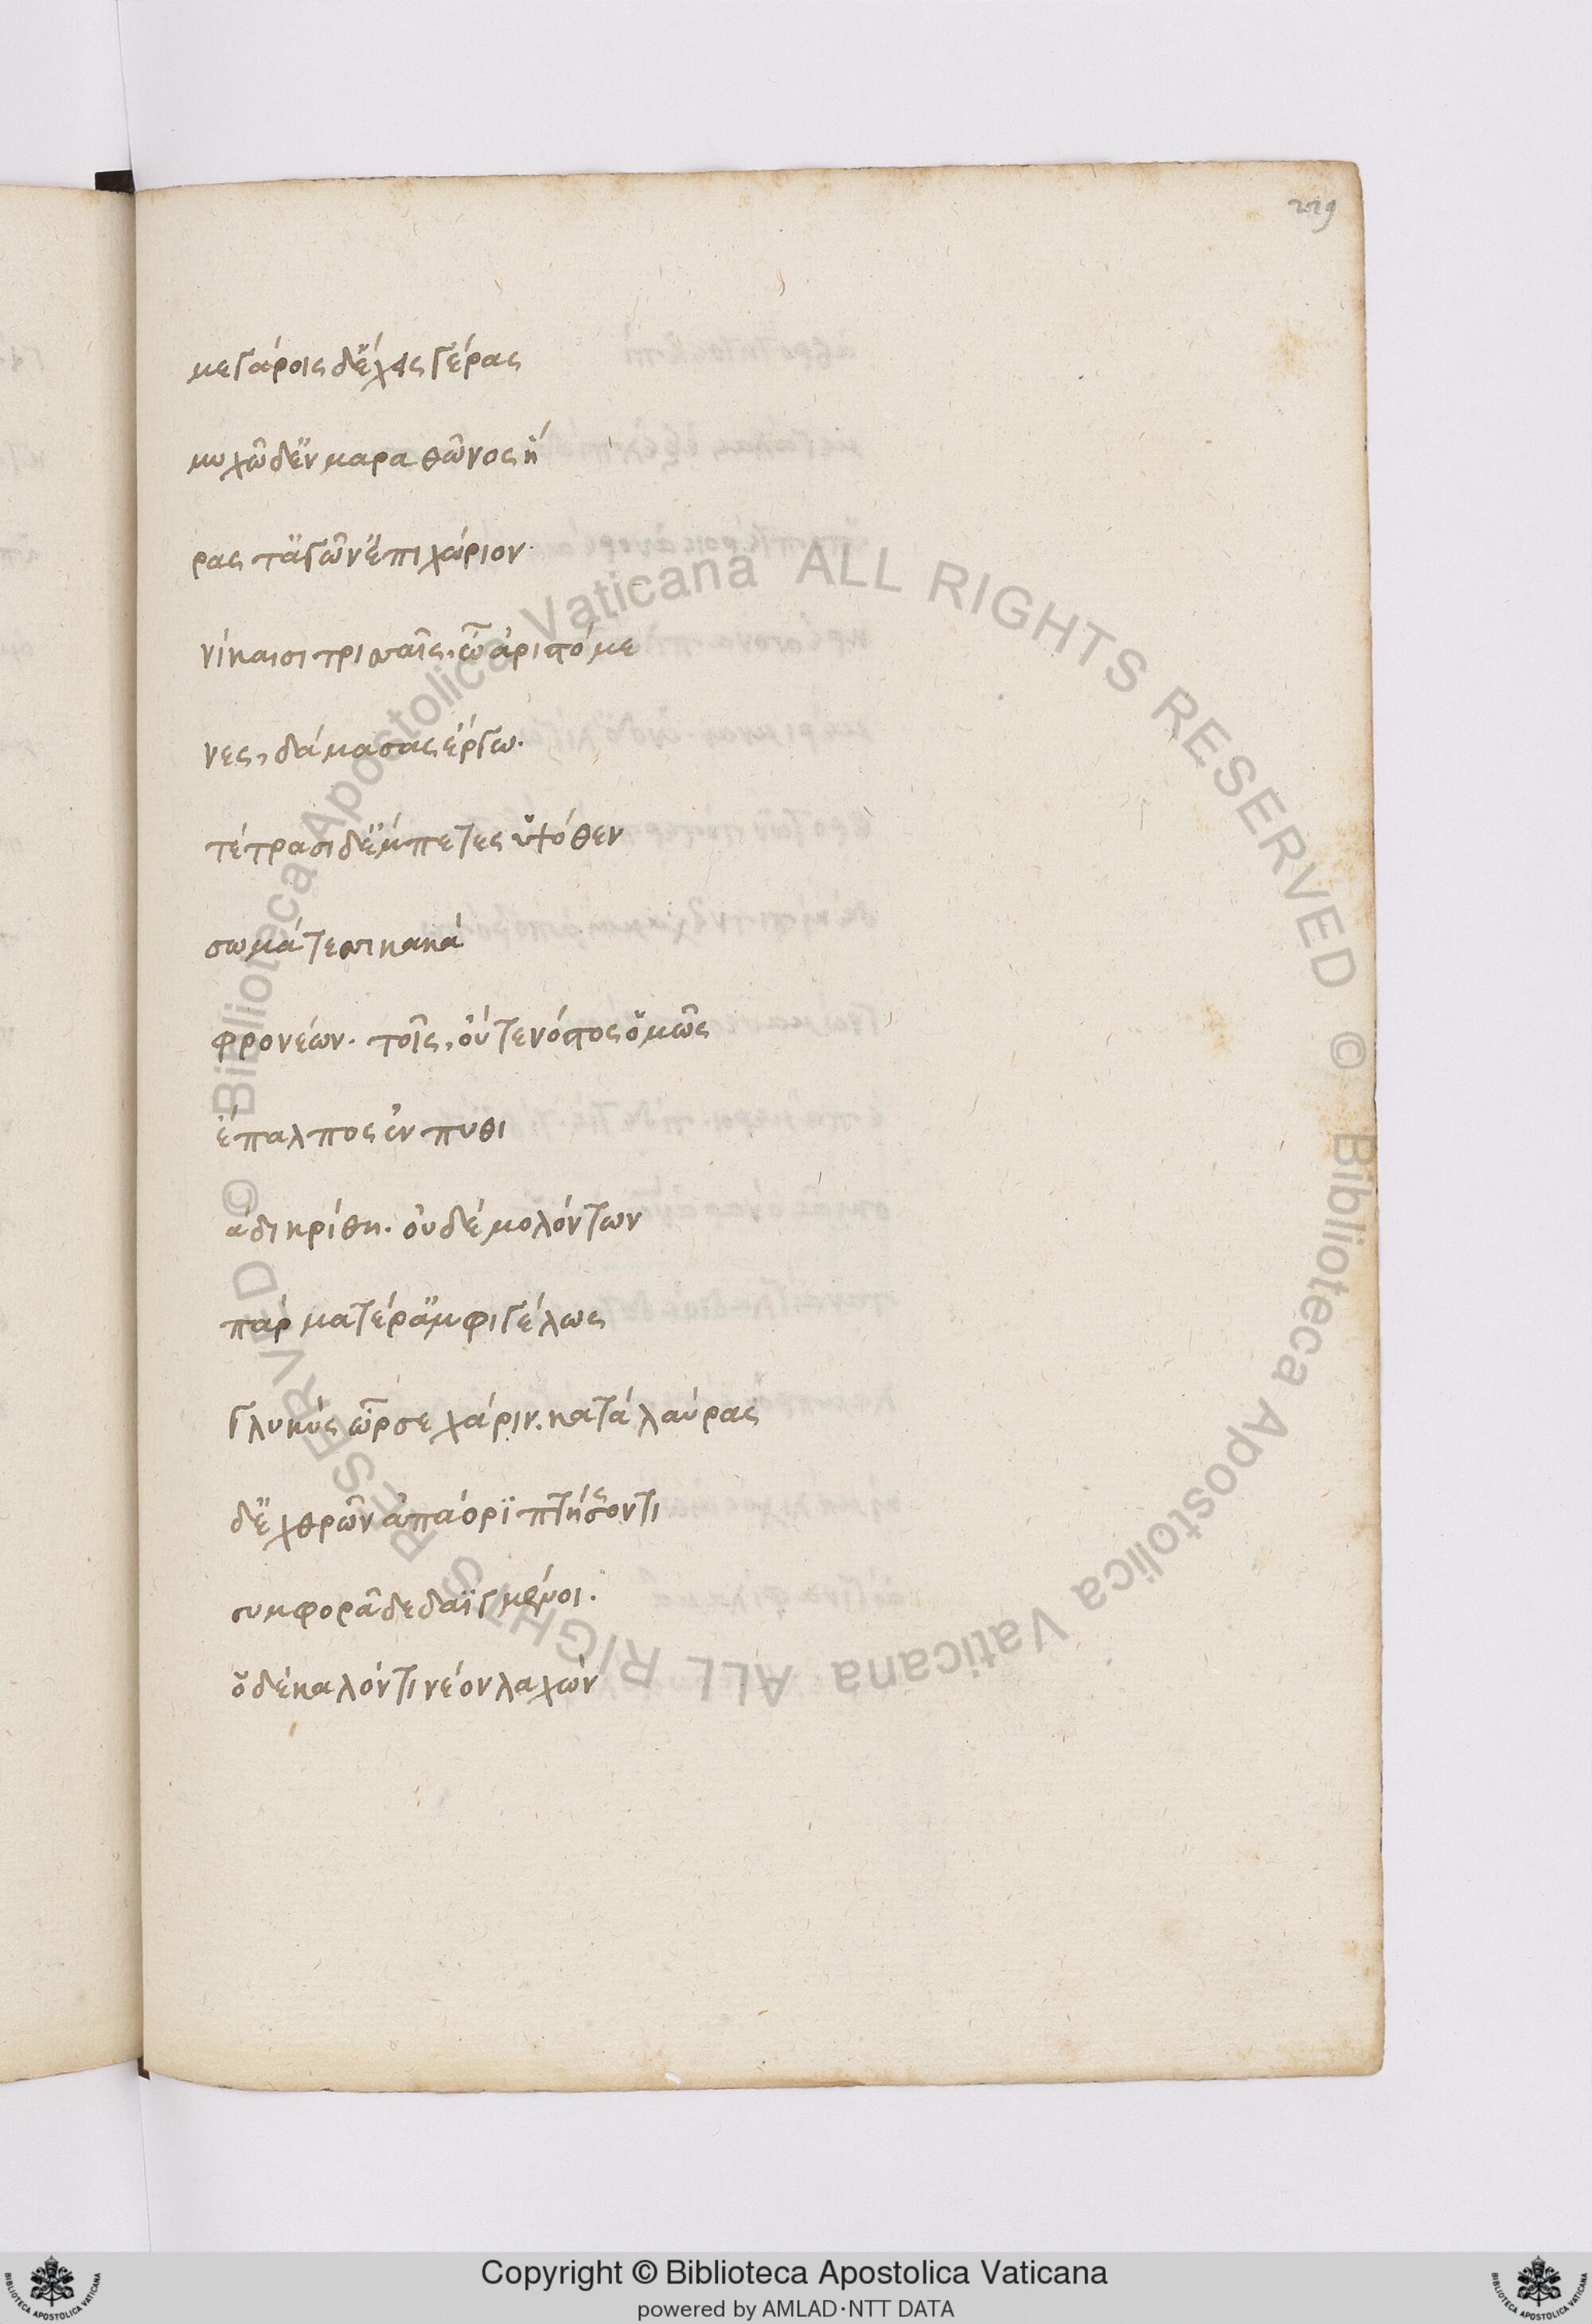 229
μεγάροις δἔχεις γέρας
μυχῶ δἔν μαραθῶνος ἥ
ρας τἄγῶν ἔπιχώριον·
νίκαισι τρισσαῖς· ὦ ἀριστόμε
νες, δάμασας ἔργω·
τέτρασι δἔμπετες ὑψόθεν
σωμάτεσσι κακά
φρονέων· τοῖς, οὔτε νόστος ὅμῶς
ἔπαλπνος ἐν πυθι
άδι κρίθη· οὐδέ μολόντων
πάρ ματέρἄμφι γέλως
γλυκύς ὦρσε χάριν. κατά λαύρας
δἔχθρῶν ἀπάορϊ πτήσσοντι
συμφορᾶ δεδαϊγμένοι·
ὅ δέ καλόν τι νέον λαχών
© Biblioteca Apostolica Vaticana ALL RIGHTS RESERVED © Biblioteca Apostolica Vaticana ALL RIGHTS RESERVED
Copyright © Biblioteca Apostolica Vaticana
powered by AMLAD·NTT DATA
BIBLIOTECA APOSTOLICA VATICANA
BIBLIOTECA APOSTOLICA VATICANA